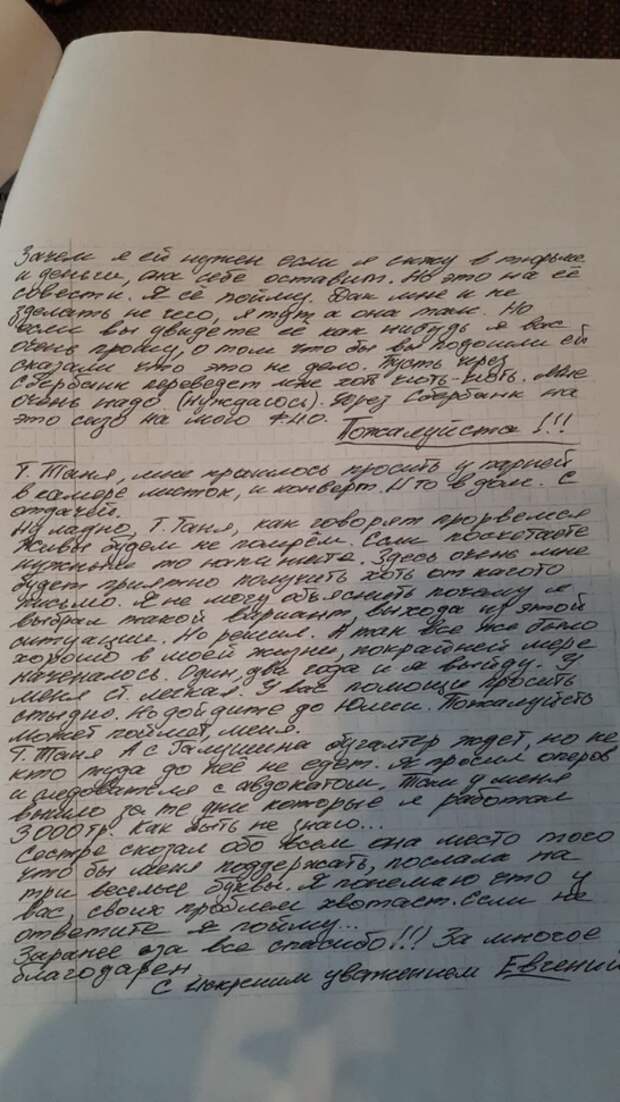 Зачем я ей нужен если я сижу в тюрьме
и деньги, она себе оставит. Но это на её
совести. Я её пойму. Так мне и не
зделать не чего, я тут а она там. Но
если вы увидете её как нибудь я вас
очень прошу, о том что бы вы подошли ей
сказали что это не дело. Пусть через
Сбербанк переведет мне хоть чють-чють. Мне
очень надо (нуждаюсь). Через Сбербанк на
это сизо на мою ФИО.
Пожалуйста!!!
Т. Таня, мне пришлось просить у парней
в камере листок, и конверт. И то в долг. С
отдачей.
Ну ладно, Т. Таня, как говорят прорвемся
Живы будем не помрём. Если посчетаете
нужным то напишите. Здесь очень мне
будет приятно получить хоть от какого то
письмо. Я не могу объяснить почему я
выбрал такой вариант, выхода из этой
ситуации. Но решил. А так все же было
хорошо в моей жизни, покрайней мере
наченалось. Один, два года и я выйду. У
меня ст. легкая. У вас помощи просить
стыдно. Но дойдите до Юлии. Пожалуйсть
может поймет, меня.
Т. Таня А с Галушина бугалтер ждет, но не
кто туда до неё не едет. Я просил оперов
и следователя с авдокатом. Там у меня
вышло за те дни которые я работал
3000тр. Как быть не знаю...
Сестре сказал обо всем она место того
что бы меня поддержать, послала на
три веселые буквы. Я понемаю что у
вас, своих проблем хватает. Если не
ответите я пойму...
Заранее за все спасибо!!! За многое
благодарен
С Искреним уважением Евгений